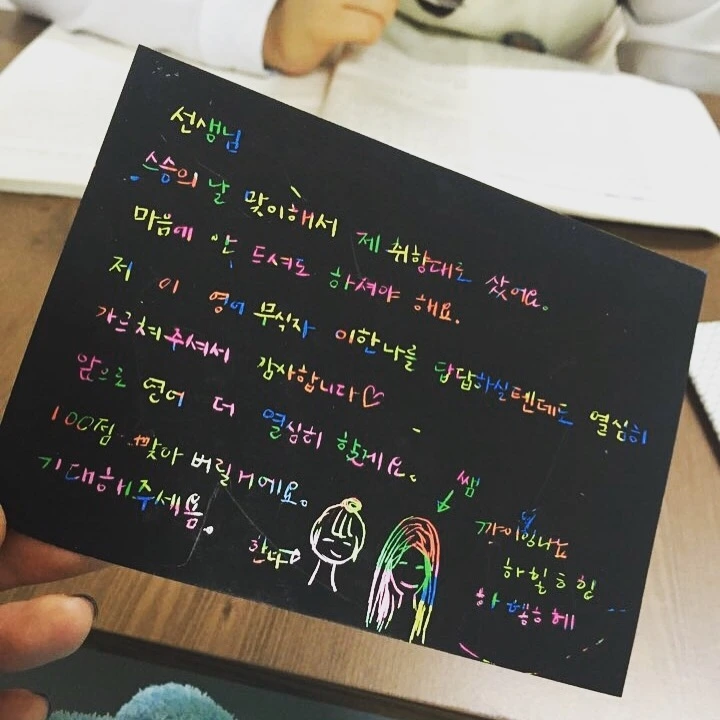 선생님
스승의 날 맞이해서 제 취향대로 샀어요.
마음에 안 드셔도 하셔야 해요.
저 이 영어 무식자 이한나를 답답하실텐데도 열심히
가르쳐주셔서 감사합니다♡
앞으로 영어 더 열심히 할게요.
100점 맞아 버릴거에요.
기대해주세욤.
한나
쌤